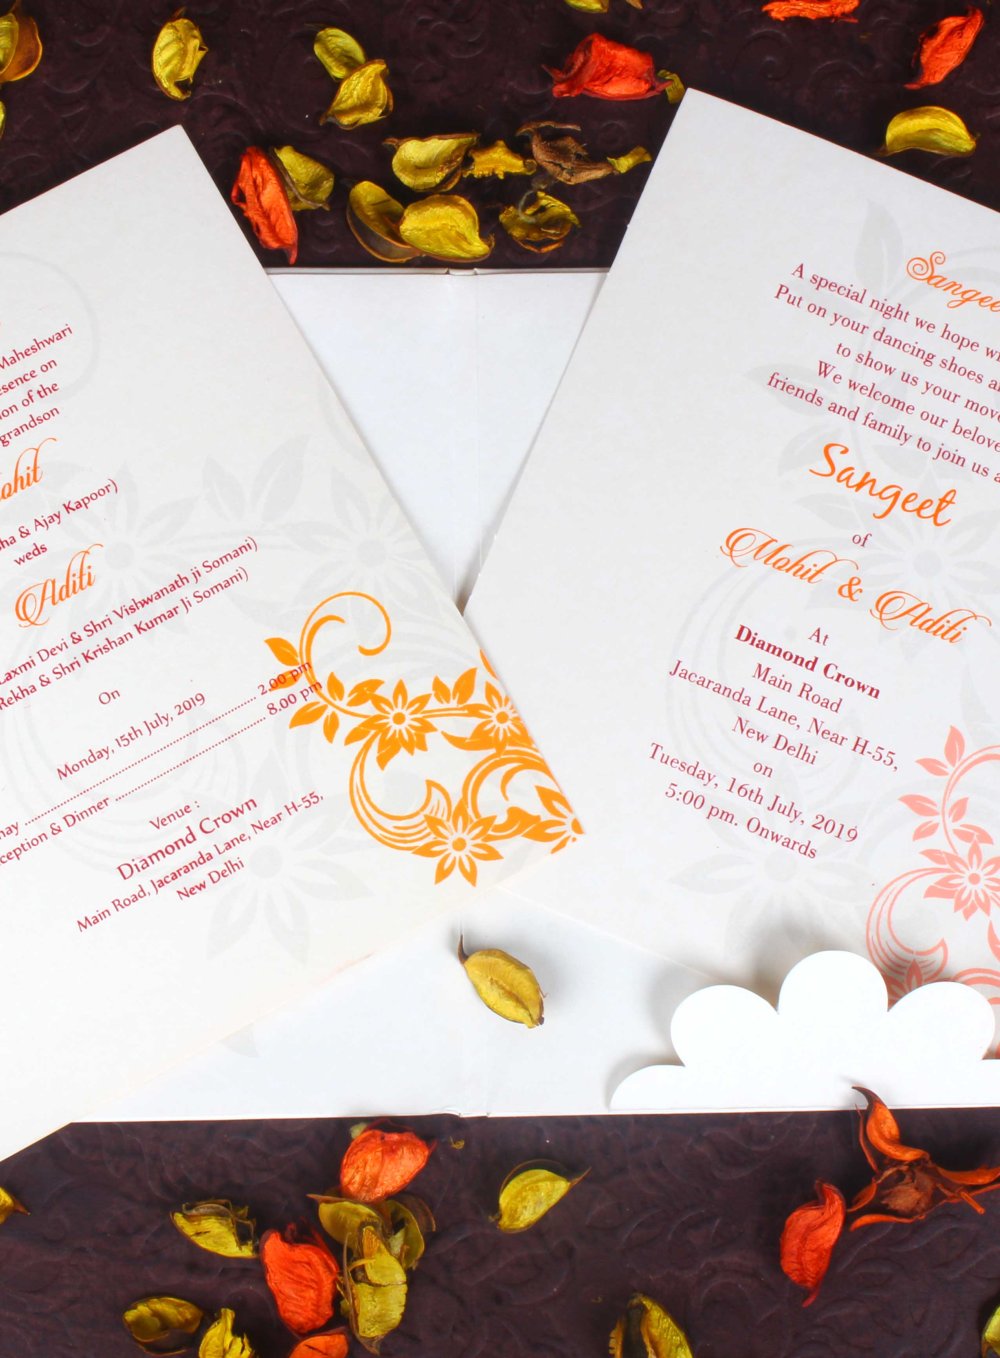 Maheshwari
esence on
ion of the
grandson
ohit
ha & Ajay Kapoor)
weds
Aditi
Laxmi Devi & Shri Vishwanath ji Somani)
Rekha & Shri Krishan Kumar Ji Somani)
On
Monday, 15th July, 2019
nay ........ 2.00 pm
ception & Dinner ........ 8.00 pm
Venue :
Diamond Crown
Main Road, Jacaranda Lane, Near H-55,
New Delhi
Sangee
A special night we hope wi
Put on your dancing shoes a
to show us your move
We welcome our belove
friends and family to join us a
Sangeet
of
Mohit & Aditi
At
Diamond Crown
Main Road
Jacaranda Lane, Near H-55,
New Delhi
on
Tuesday, 16th July, 2019
5:00 pm. Onwards